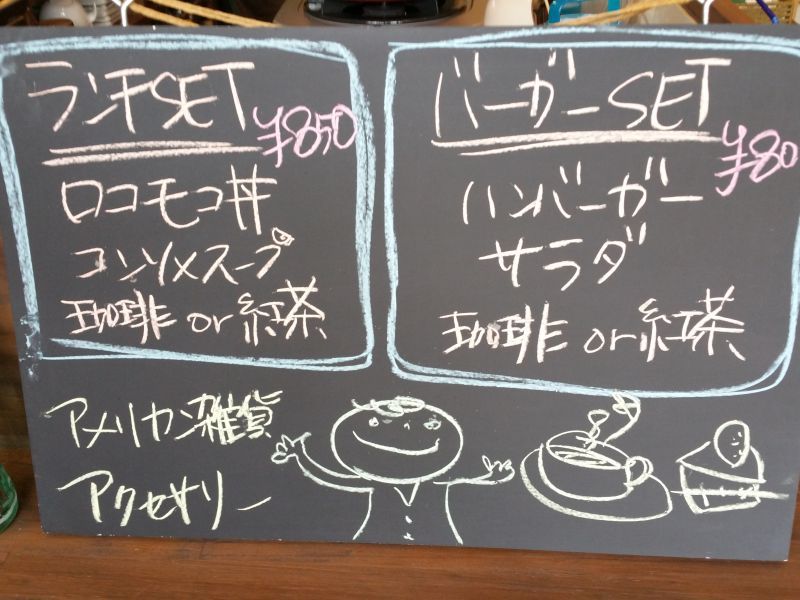 ランチSET
¥850
ロコモコ丼
コンソメスープ
珈琲 or 紅茶
バーガーSET
¥80
ハンバーガー
サラダ
珈琲 or 紅茶
アメリカン雑貨
アクセサリー